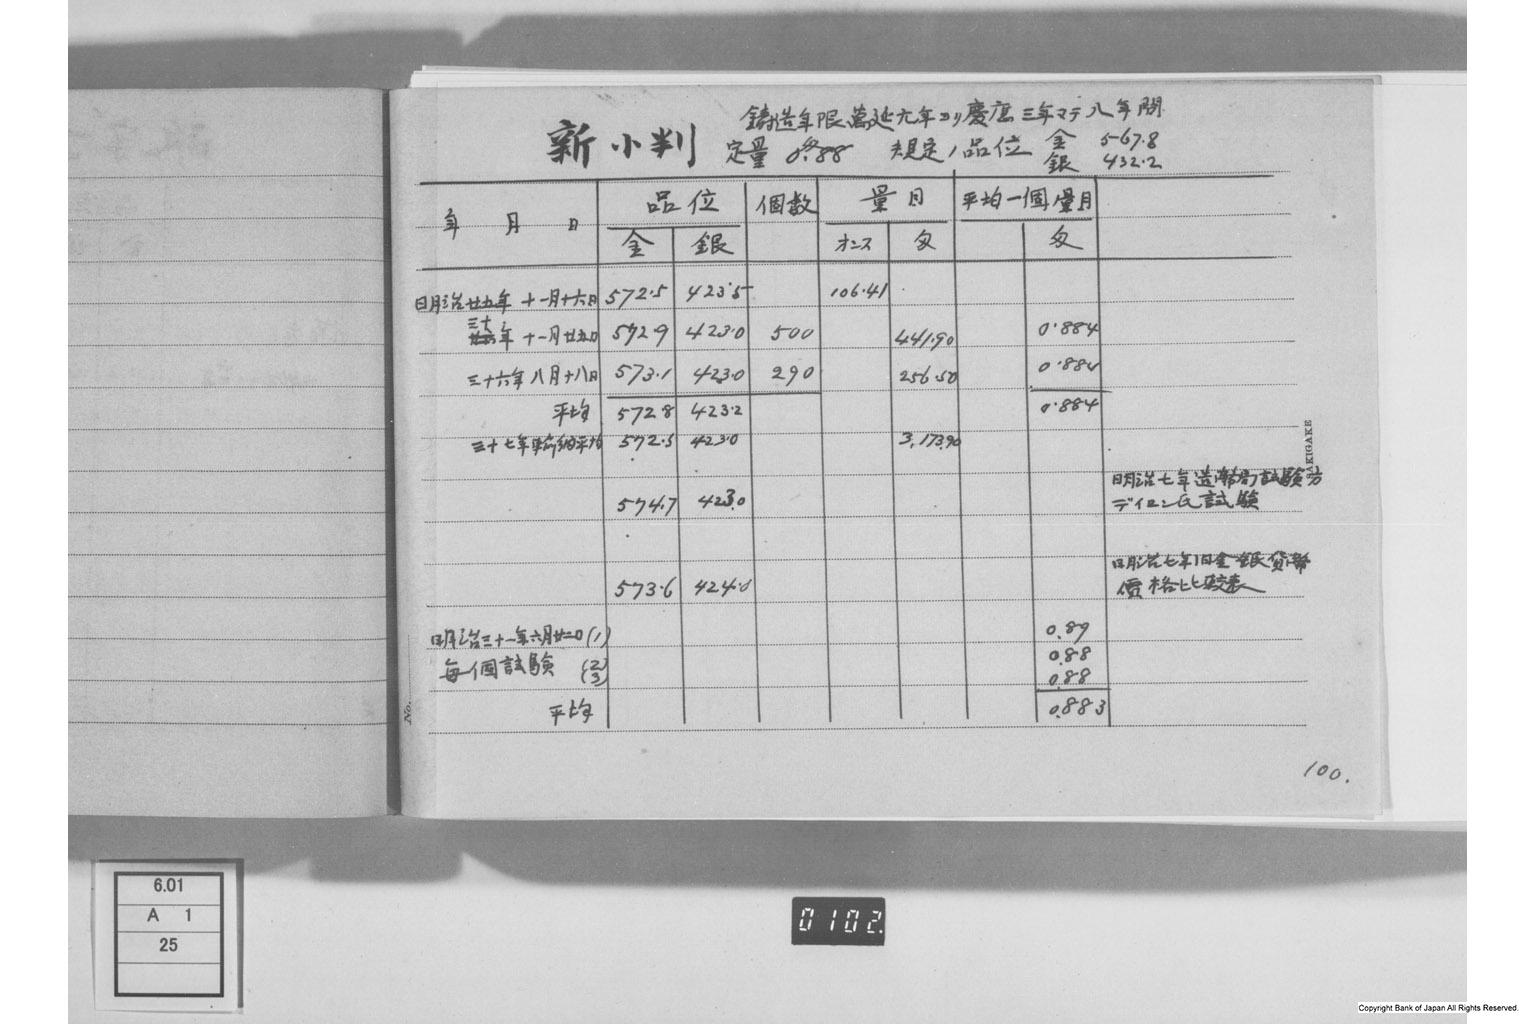 鋳造年限萬延元年ヨリ慶應三年マテ八年間
新小判 定量 0.88 規定ノ品位 金 567.8
銀 432.2
年 月 日 品位 個数 量目 平均一個ノ量目
金 銀 オンス 匁 匁
明治廿五年 十一月十六日 572.5 423.5 106.41
三十年 十一月廿五日 572.9 423.0 500 441.90 0.884
三十六年 八月十八日 573.1 423.0 290 256.50 0.884
平均 572.8 423.2 0.884
三十七年輸納平均 572.5 423.0 3,173.90
574.7 423.0 明治七年造幣局試験方
ディロン氏試験
573.6 424.0 明治七年旧金銀貨幣
價格比較表
明治三十一年六月廿二日 (1) 0.89
毎個試験 (2) 0.88
(3) 0.88
平均 0.883
No.
100.
6.01
A 1
25
0102.
Copyright Bank of Japan All Rights Reserved.